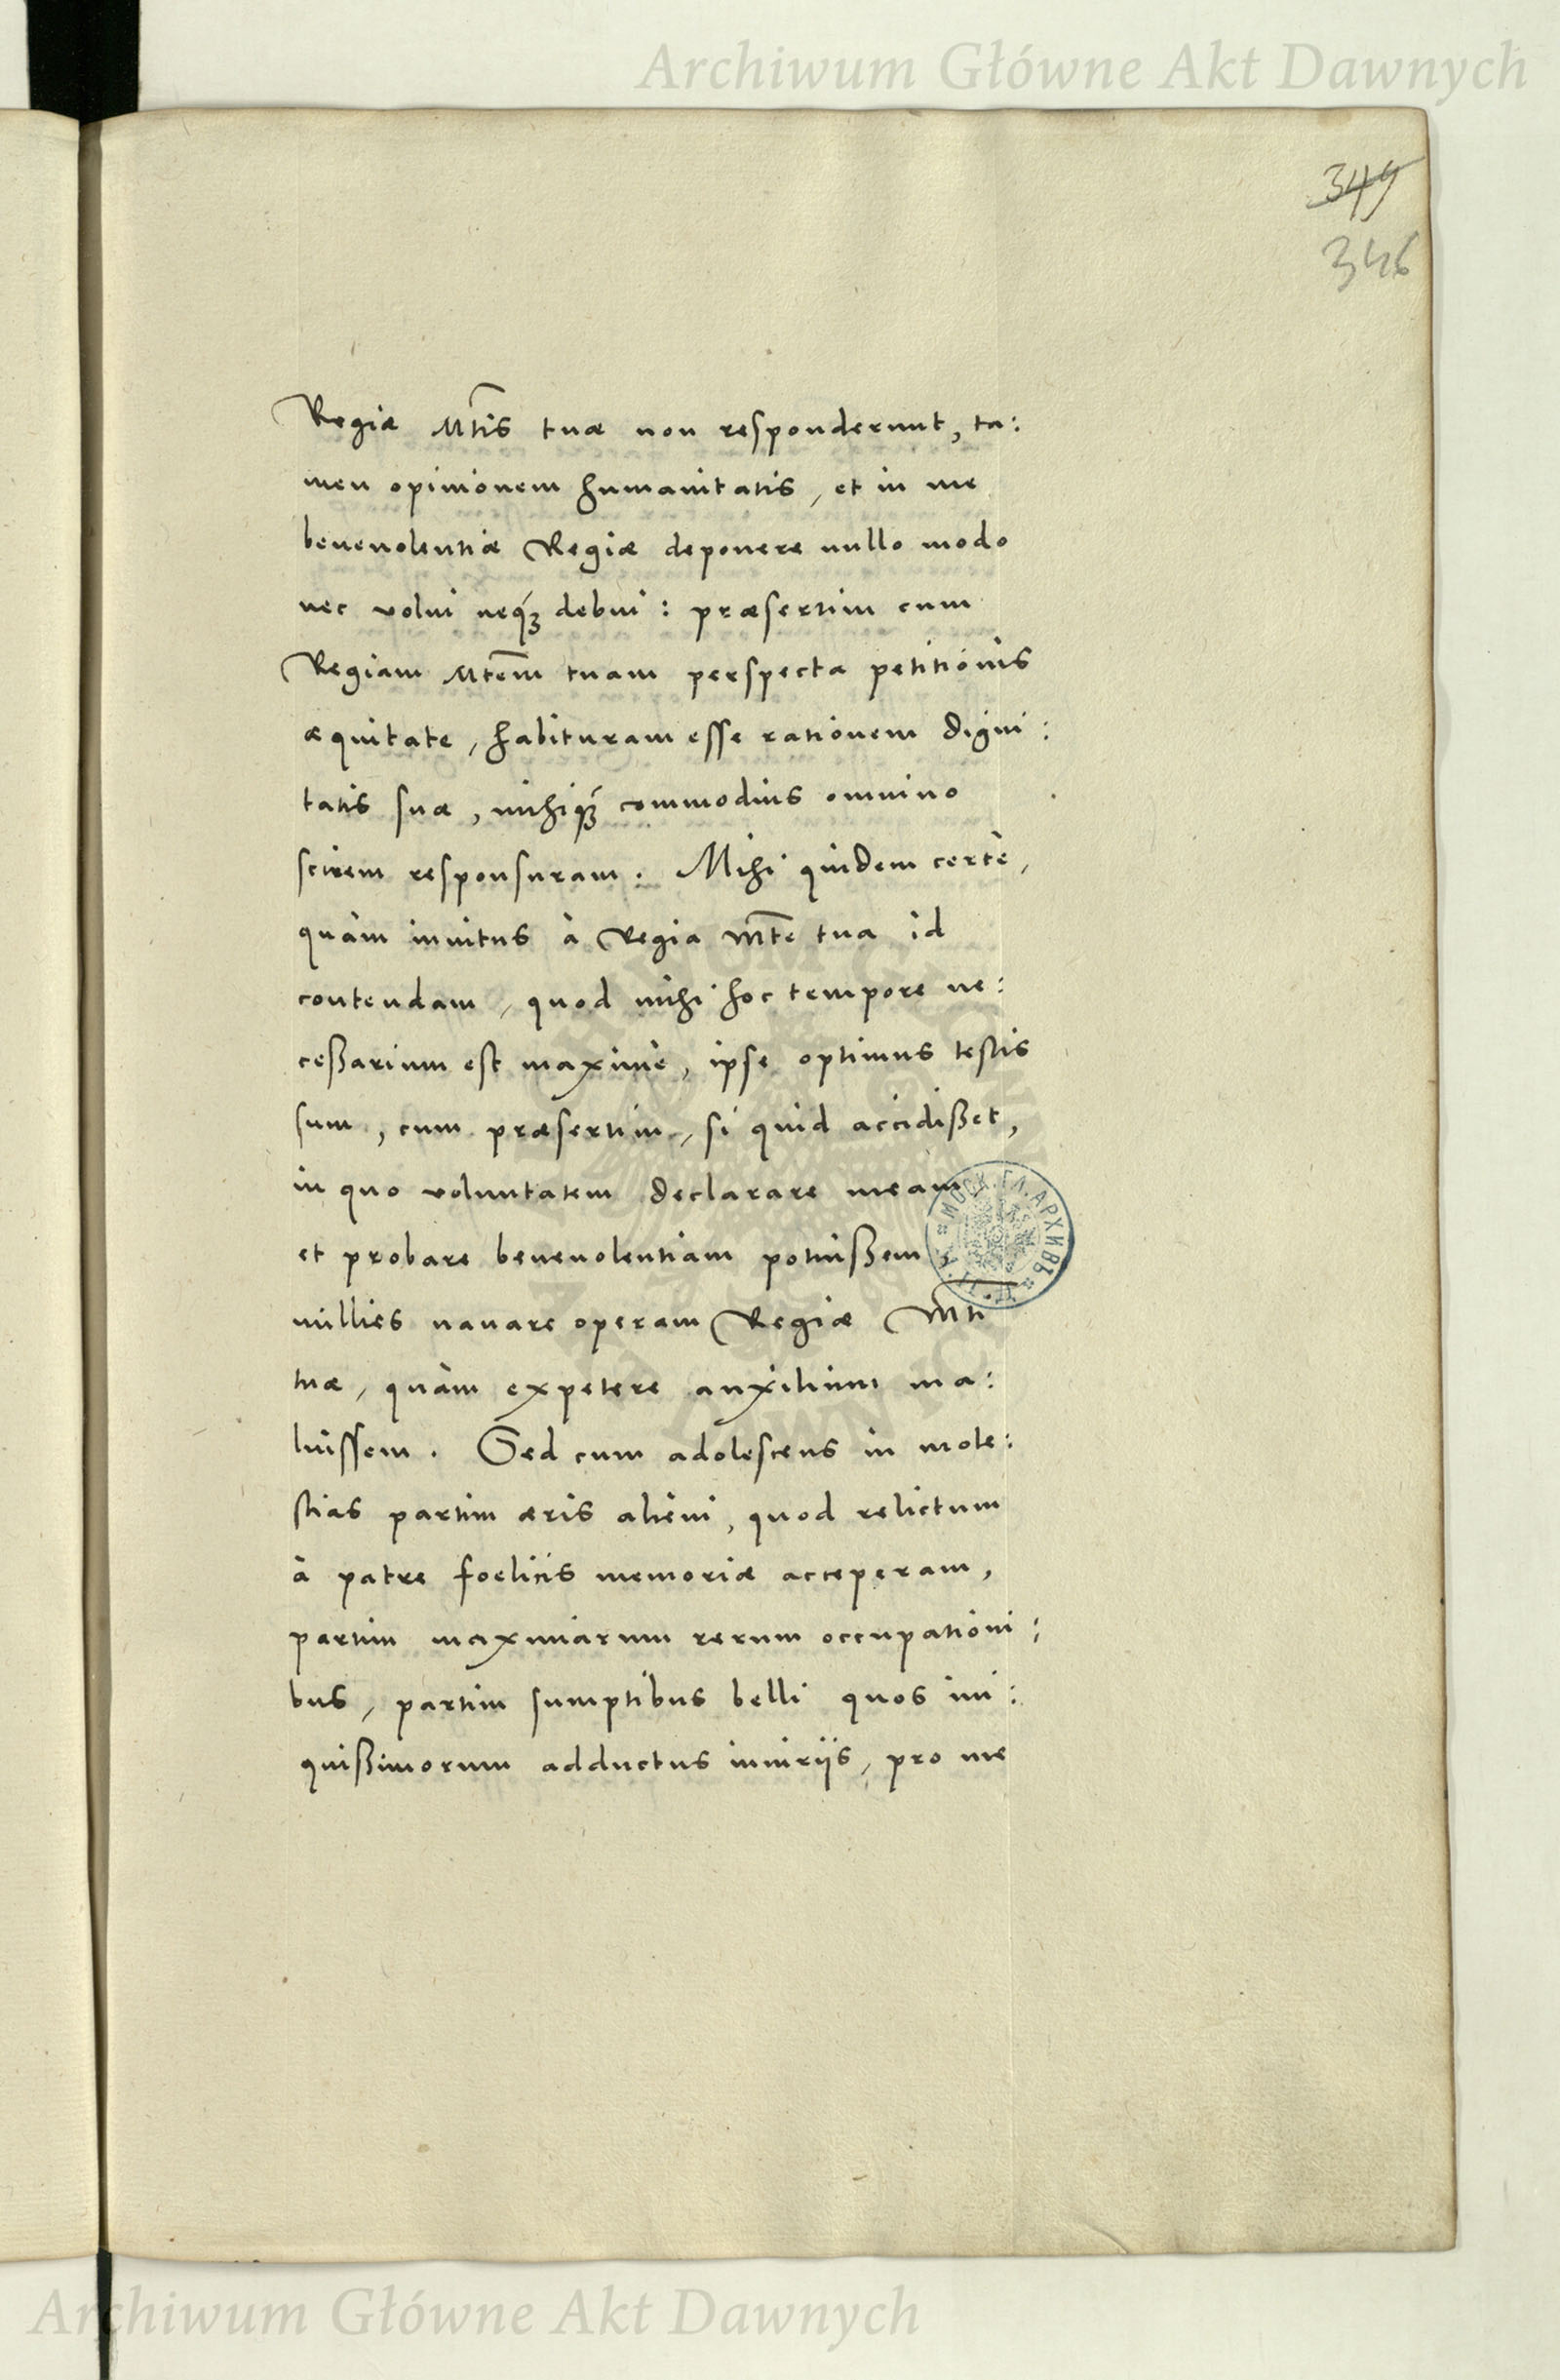 Archiwum Główne Akt Dawnych
349
346
Regiæ Mtis tuæ non responderunt, ta:
men opinionem humanitatis, et in me
beneuolentiæ Regiæ deponere nullo modo
nec volui neq́ꝫ debui: præsertim cum
Regiam Mtem tuam perspecta petitionis
æquitate, habituram esse rationem digni:
tatis suæ, mihiq́ꝫ commodius omnino
scirem responsuram. Mihi quidem certè,
quàm inuitus à Regia Mte tua id
contendam, quod mihi hoc tempore ne:
ceßarium est maximè, ipse optimus testis
sum, cum præsertim, si quid accidißet,
in quo voluntatem declarare meam,
et probare beneuolentiam potuißem,
millies nauare operam Regiæ Mti
tuæ, quàm expetere auxilium ma:
luissem. Sed cum adolescens in mole:
stias partim æris alieni, quod relictum
à patre foelicis memoriæ acceperam,
partim maximarum rerum occupationi:
bus, partim sumptibus belli quos ini:
quißimorum adductus iniurijs, pro me
МОСК. ГЛ. АРХИВЪ
Archiwum Główne Akt Dawnych